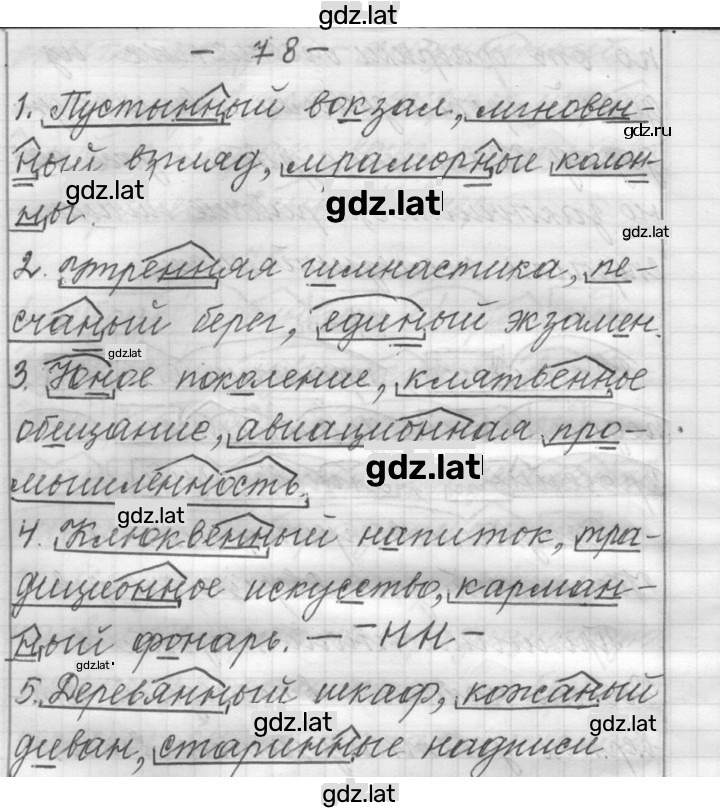 gdz.lat
- 78 -
1. Пустынный вокзал, мгновен-
gdz.ru
ный взгляд, мраморные колон-
gdz.lat
gdz.lat
ны.
gdz.lat
2. Утренняя гимнастика, пе-
счаный берег, единый экзамен.
gdz.lat
3. Юное поколение, клятвенное
обещание, авиационная про-
gdz.lat
мышленность.
gdz.lat
4. Клюквенный напиток, тра-
диционное искусство, карман-
ный фонарь. - -НН-
gdz.lat
5. Деревянный шкаф, кожаный
gdz.lat
gdz.lat
диван, старинные надписи.
gdz.lat